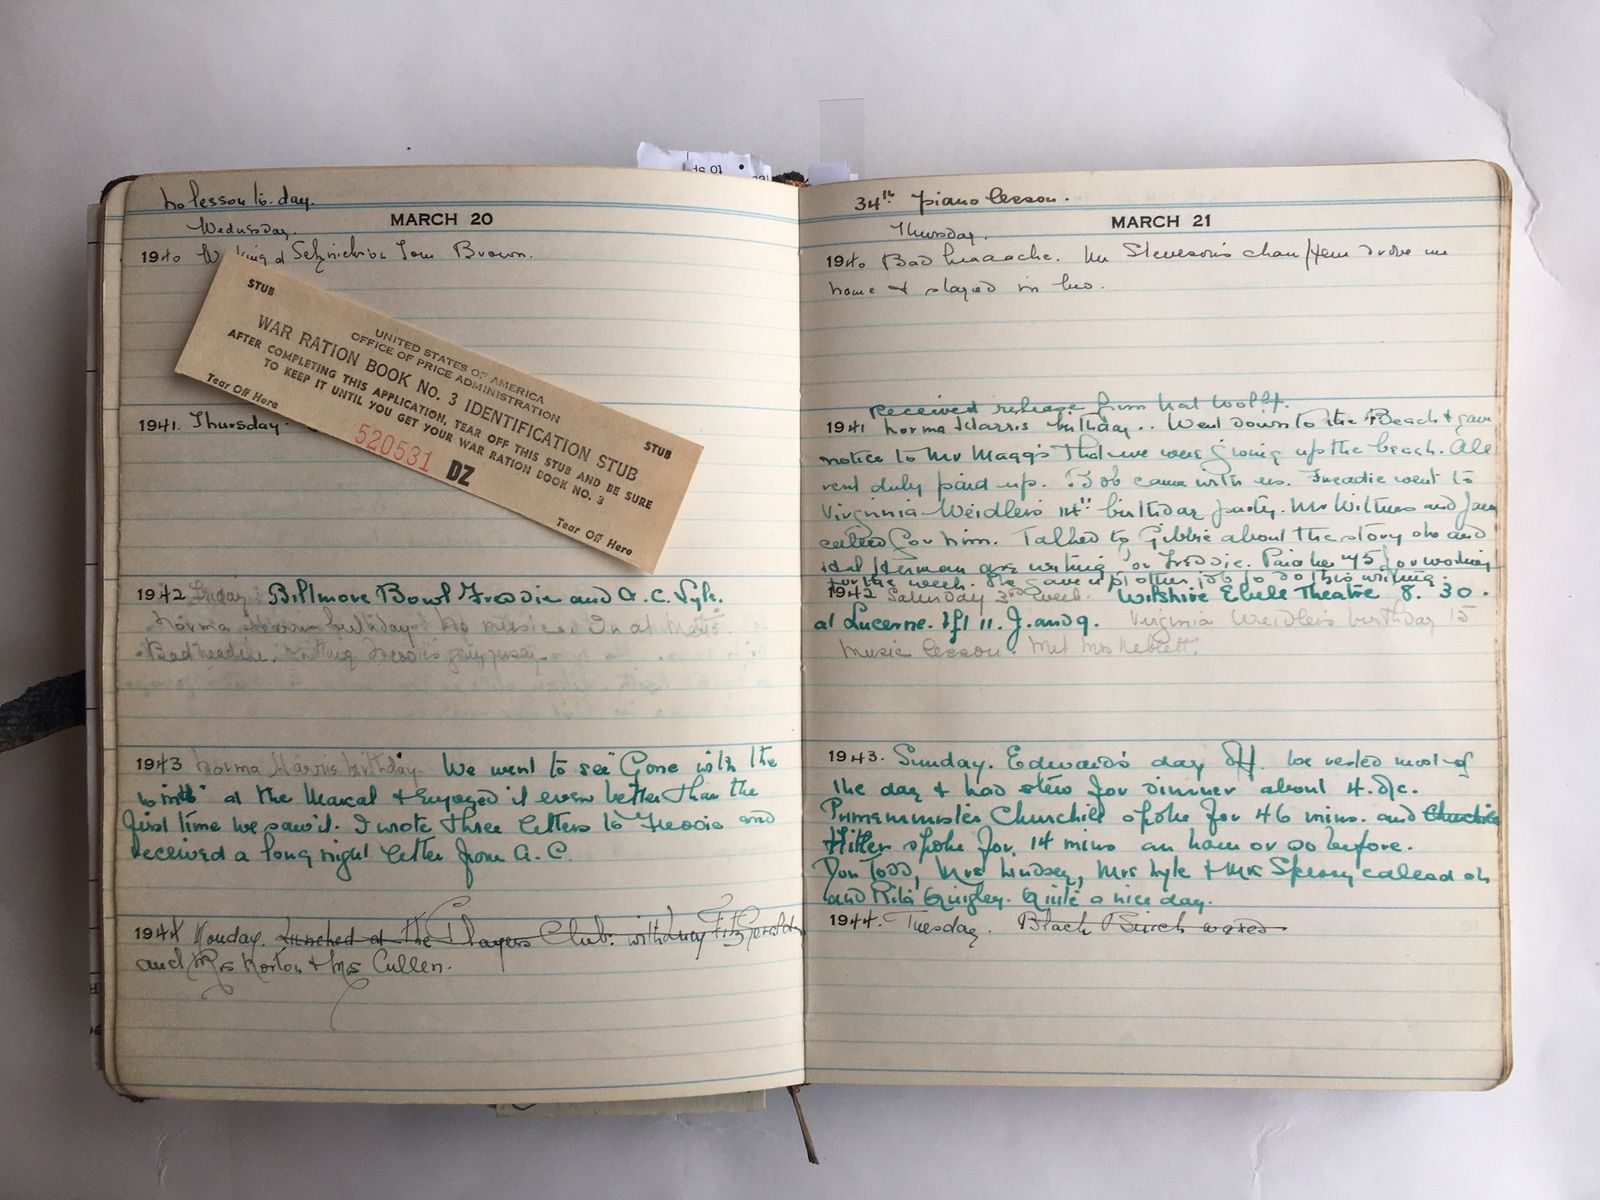 No lesson to-day.
MARCH 20
Wednesday.
1940 Selznick Tom Brown.
STUB
UNITED STATES OF AMERICA
OFFICE OF PRICE ADMINISTRATION
WAR RATION BOOK No. 3 IDENTIFICATION STUB
AFTER COMPLETING THIS APPLICATION, TEAR OFF THIS STUB AND BE SURE
TO KEEP IT UNTIL YOU GET YOUR WAR RATION BOOK NO. 3
STUB
Tear Off Here
520531 DZ
Tear Off Here
1941. Thursday.
1942 Friday. Biltmore Bowl Freddie and A.C. Lyle.
Norma Harris birthday. No music.
Bad headache.
1943 Norma Harris birthday. We went to see "Gone with the
wind" at the Marcal & enjoyed it even better than the
first time we saw it. I wrote three letters to Freddie and
received a long night letter from A.C.
1944 Monday. Lunched at the Players Club. with Lucy FitzGerald
and Mrs Norton & Mrs Cullen.
34th piano lesson.
MARCH 21
Thursday.
1940 Bad headache. Mr Stevenson's chauffeur drove me
home & stayed in bed.
received release from Nat Wolff.
1941 Norma Harris birthday.. Went down to the Beach & gave
notice to Mr Maggs that we were giving up the beach. All
rent duly paid up. Bob came with us. Freddie went to
Virginia Weidler's 14th birthday party. Mr Witmes and Jane
called for him. Talked to Gibbie about the story she and
Hal Herman are writing for Freddie. Paid her 75 for working
for the week. She gave up other job to do this writing.
1942 Saturday 3rd week. Wilshire Ebell Theatre 8.30.
at Lucerne. Hfl 11. J. and 9. Virginia Weidler's birthday 15
Music lesson. Met Mrs Neblett.
1943. Sunday. Edward's day off. We rested most of
the day & had stew for dinner about 4. o/c.
Prime minister Churchill spoke for 46 mins. and Churchill
Hitler spoke for 14 mins an hour or so before.
Don Todd, Mrs Lindsey, Mrs Lyle & Mrs Sperry called oh
and Rita Quigley. Quite a nice day.
1944. Tuesday. Black Birch waxed